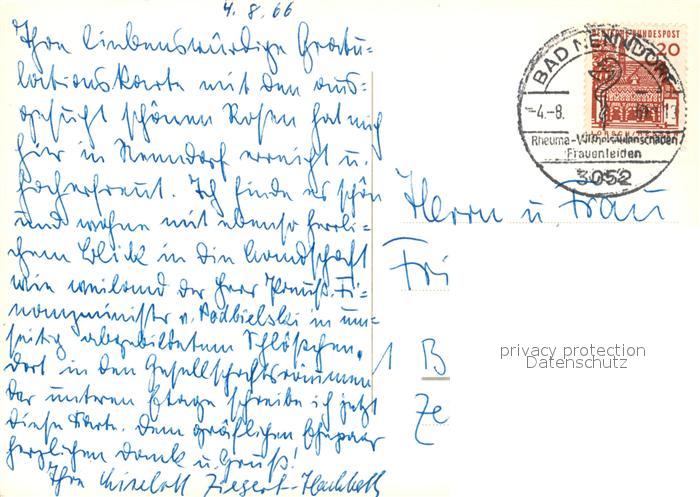 4. 8. 66
Ihre liebenswürdige Gratu=
lationskarte mit den aus=
gesucht schönen Rosen hat mich
hier in Nenndorf erreicht u.
hocherfreut. Ich finde es schön
und wohne mit ebenso herrli=
chem Blick in die Landschaft
wie weiland der Herr Preuß. Fi=
nanzminister v. Podbielski im um=
seitig abgebildeten Schlößchen.
Dort in den Gesellschaftsräumen
der unteren Etage schreibe ich jetzt
diese Karte. Dem gräflichen Ehepaar
herzlichen Dank u. Gruß!
Ihre Liselott Ziegert-Hackbarth
DEUTSCHE BUNDESPOST
20
BAD NENNDORF
-4.-8.
13
Rheuma-
Frauenleiden
3052
Herrn u. Frau
Fri
1 B
Ze
privacy protection
Datenschutz